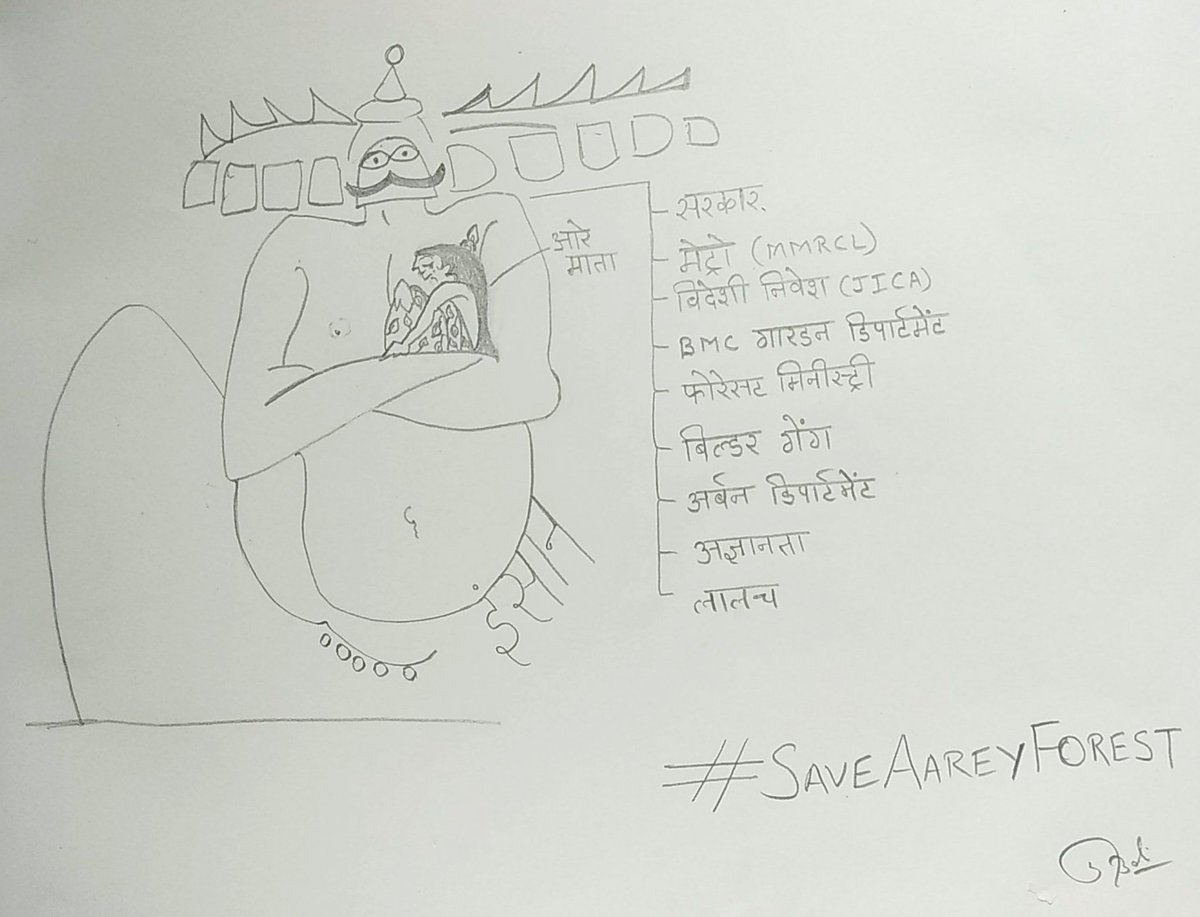 सरकार.
ओरे
माता
मेट्रो (MMRCL)
विदेशी निवेश (JICA)
BMC गारडन डिपार्टमेंट
फोरेसट मिनीस्ट्री
बिल्डर गेंग
अर्बन डिपार्टमेंट
अज्ञानता
लालच
इंसान
#SAVEAAREYFOREST